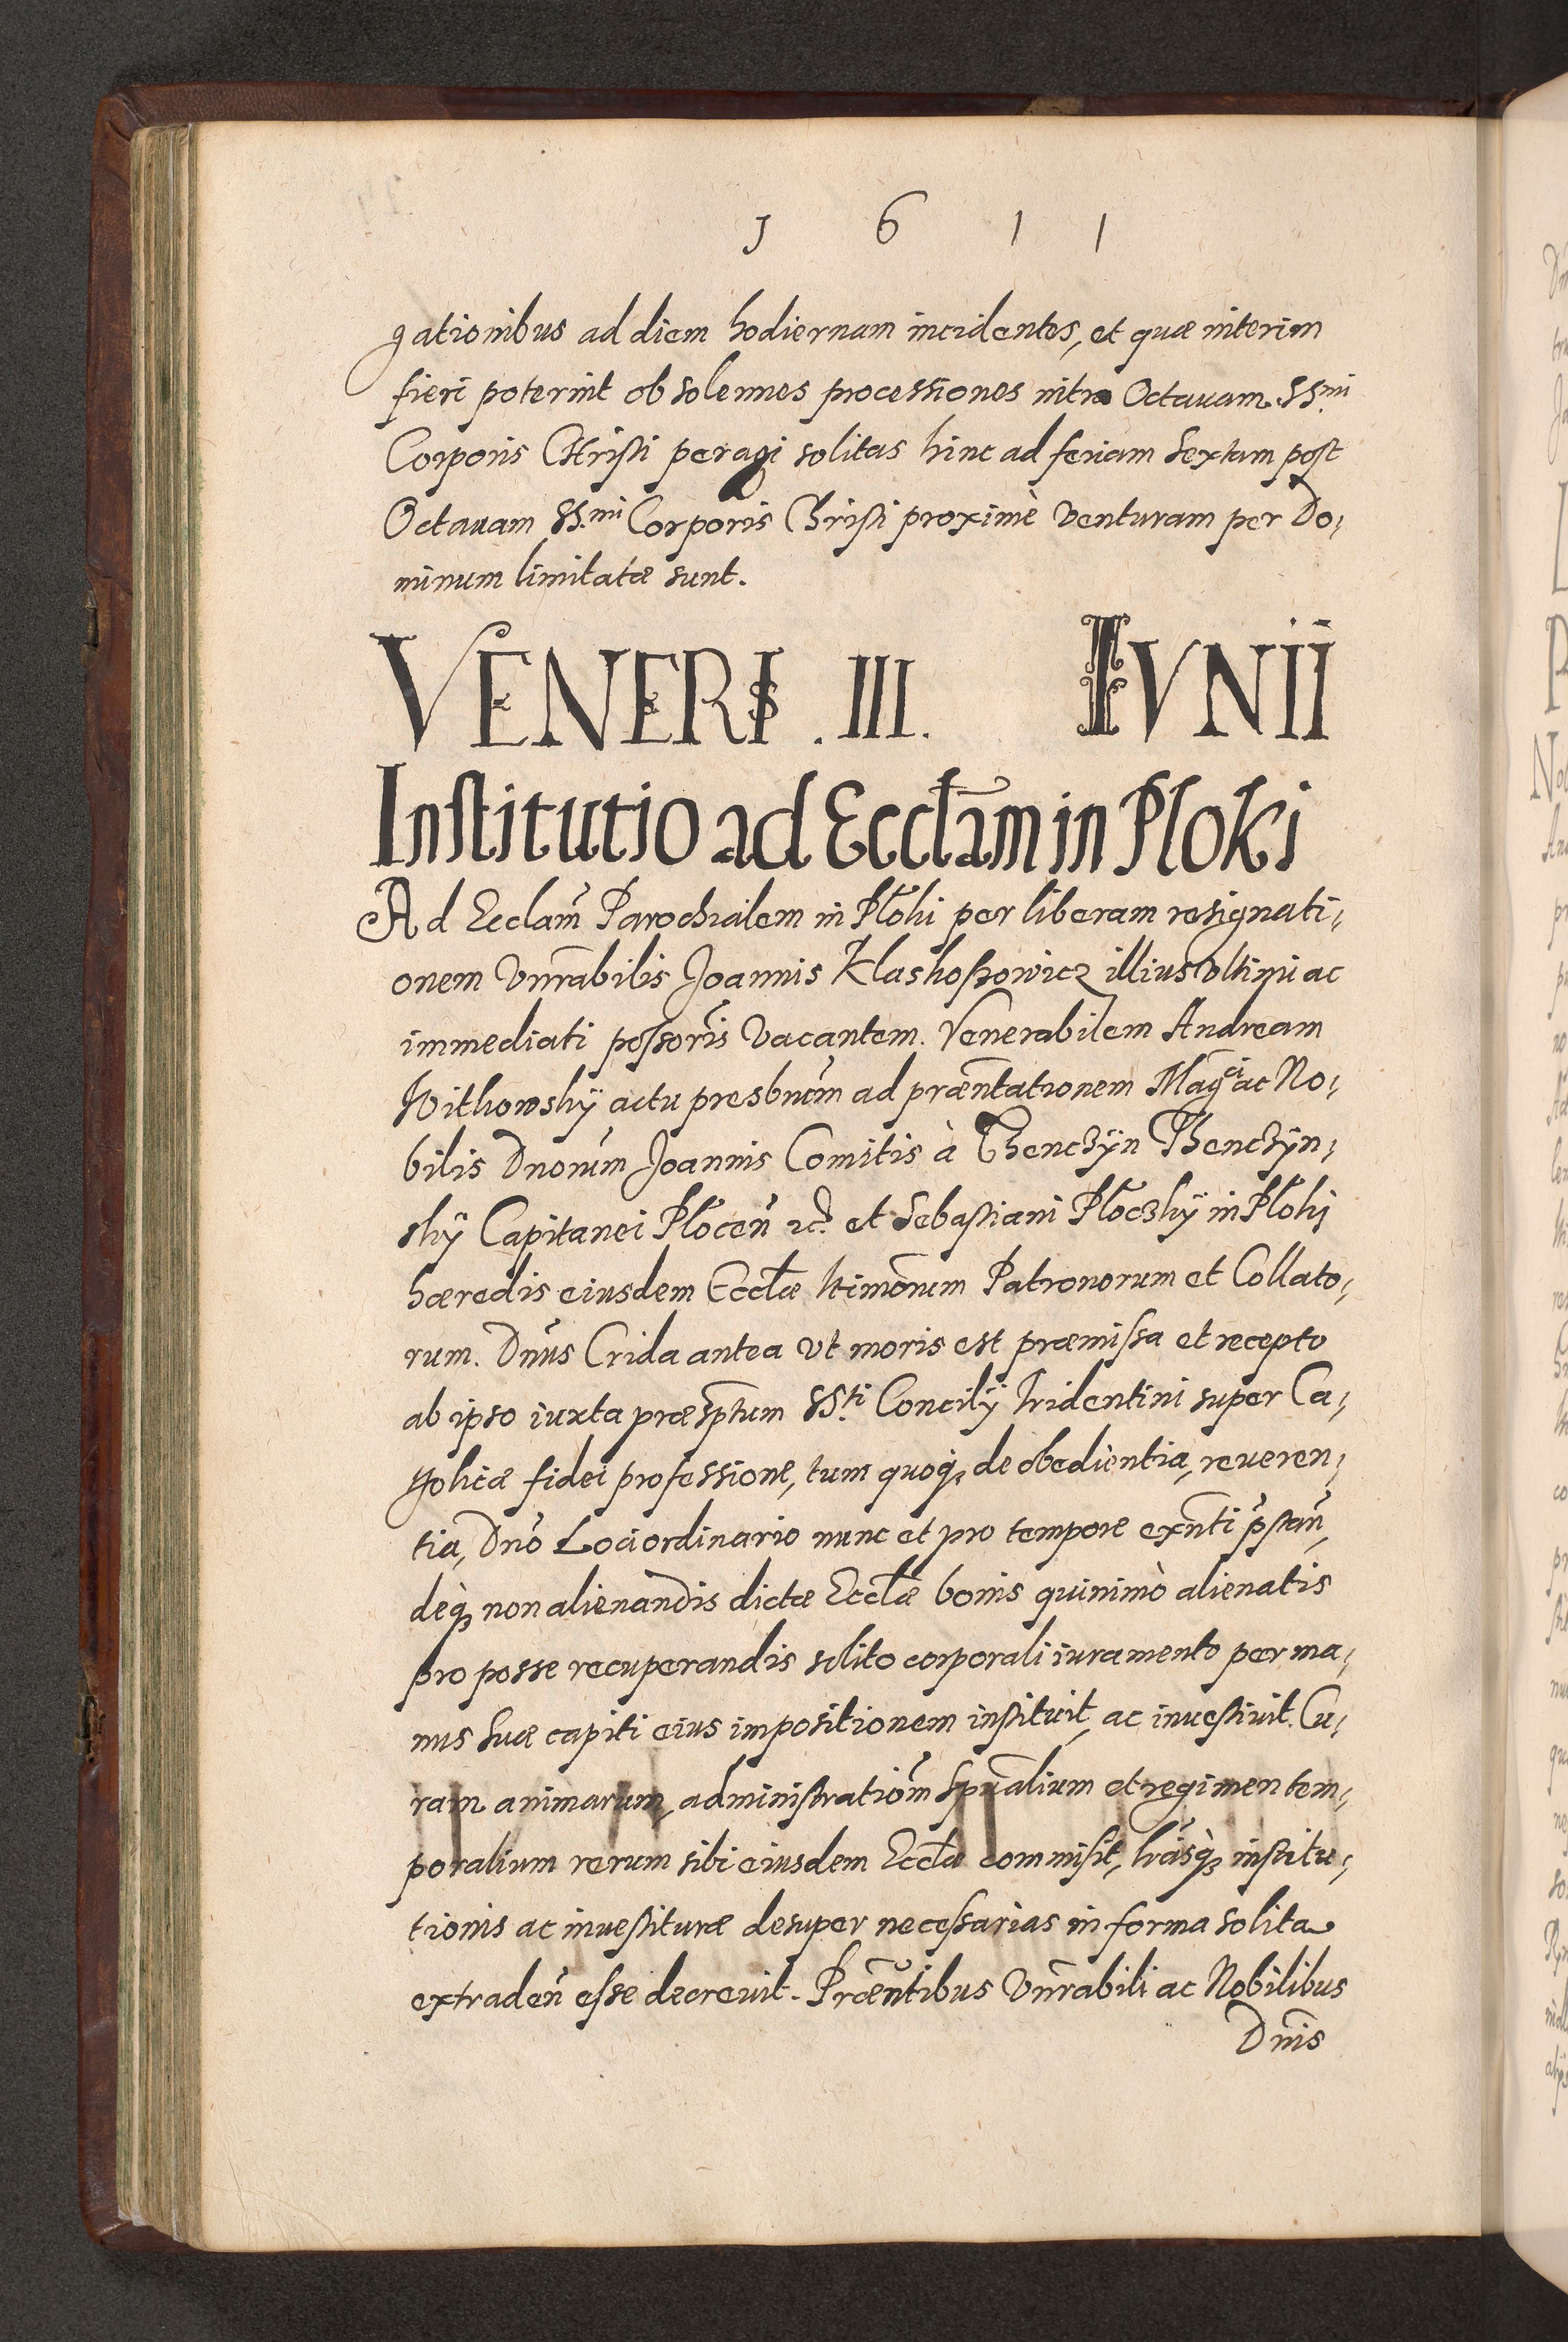 1 6 1 1
gationibus ad diem hodiernam incidentes, et quæ interim
fieri poterint ob solennes processiones intra Octauam SS.mi
Corporis Christi peragi solitas hinc ad feriam Sextam post
Octauam SS.mi Corporis Christi proximè venturam per Do,
minum limitatæ sunt.
VENERIS .III. IVNII
Institutio ad Eccl̃am in Płoki
Ad Ecclam̃ Parochialem in Płoki per liberam resignati,
onem Vnrãbilis Joannis Klaskoszowicz illius vltimi ac
immediati possoris̃ vacantem. Venerabilem Andream
Witkowskÿ actu presbrũm ad præñtationem Magci ac No,
bilis Dnorũm Joannis Comitis à Thenczÿn Thenczÿn,
skÿ Capitanei Płoceñ etc. et Sebastiani Płoczkÿ in Płoki
hæredis eiusdem Eccl̃æ ltimorũm Patronorum et Collato,
rum. Dnũs Crida antea vt moris est præmissa et recepto
ab ipso iuxta præsp̃tum SS.ti Concilÿ Tridentini super Ca,
tholicæ fidei professione, tum quoq; de obedientia, reueren,
tia, Dnõ Loci ordinario nunc et pro tempore exñti p̃stañ,
deq̀; non alienandis dictæ Eccl̃æ bonis quinimò alienatis
pro posse recuperandis solito corporali iuramento per ma,
nus suæ capiti eius impositionem instituit, ac inuestiuit. Cu,
ram animarum, administratiom̃ spũalium et regimen tem,
poralium rerum sibi eiusdem Eccl̃æ commisit, lrãsq̀; institu,
tionis ac inuestituræ desuper necessarias in forma solita
extradeñ esse decreuit. Præñtibus Vnrãbili ac Nobilibus
Dnĩs